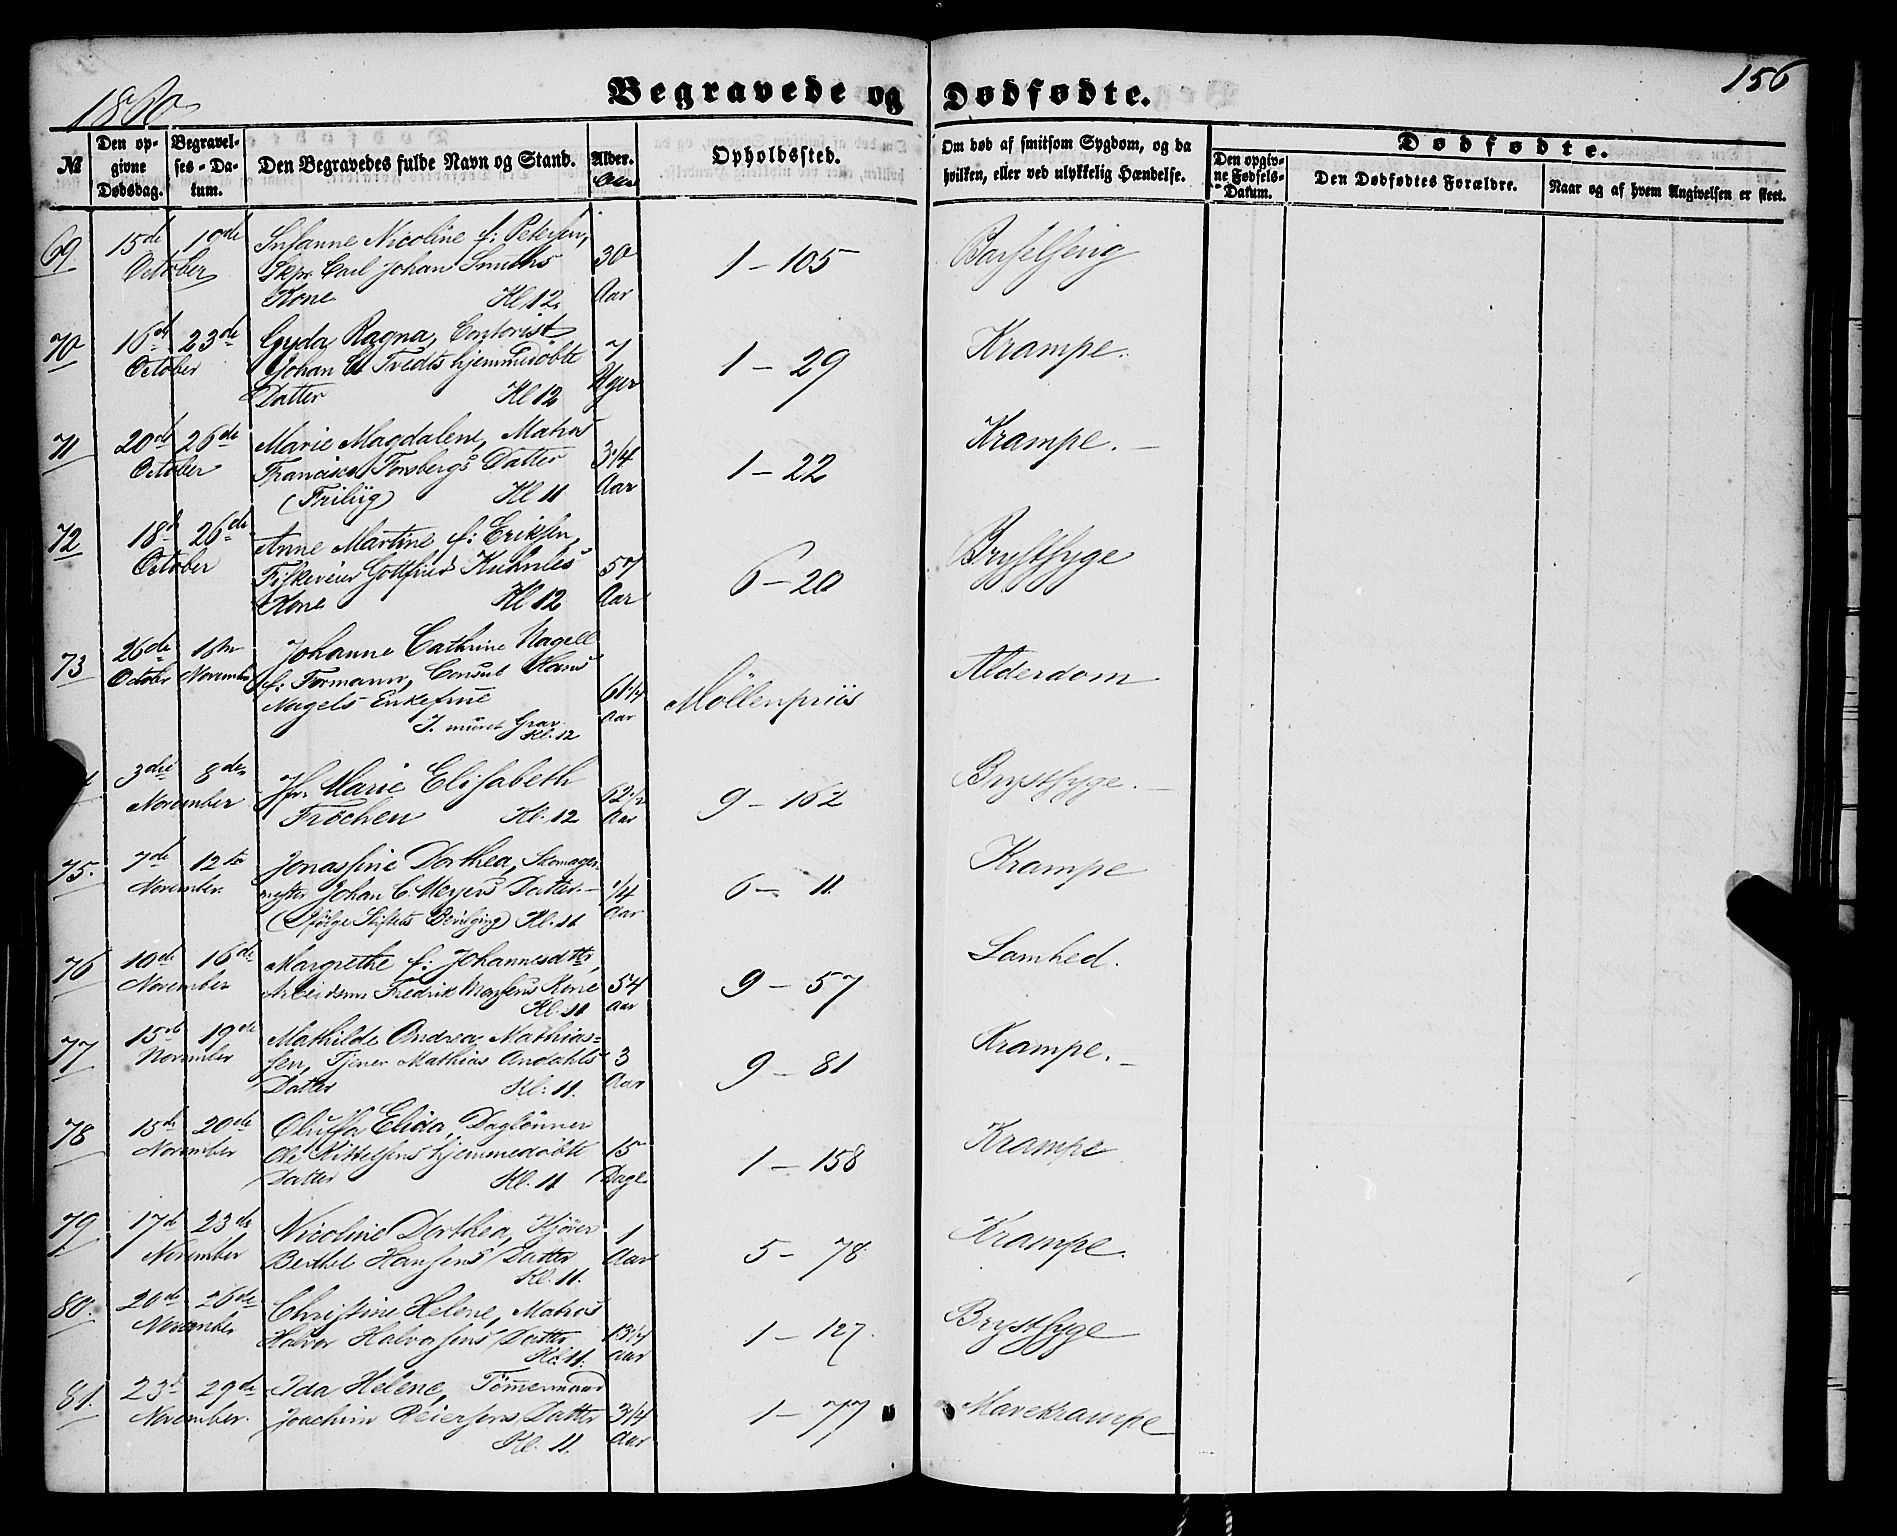 1860
Begravede og Dødfødte.
156
№
Den op-
givne
Dødsdag.
Begravel-
ses-Da-
tum.
Den Begravedes fulde Navn og Stand.
Alder.
Opholdssted.
Om død af smitsom Sygdom, og da
hvilken, eller ved ulykkelig Hændelse.
Dødfødte.
Den opgiv-
ne Fødsels-
Datum.
Den Dødfødtes Forældre.
Naar og af hvem Angivelsen er skeet.
69 15de October Susanne Nicoline f: Petersen,
Skpr Carl Johan Smiths 30
Kone Kl. 12. Aar
1 – 105 Barselseng
70 16de 23de October Gyda Ragna, Contorist
Johan C Tvedts hjemmedøbte 7
Datter Kl 12 Uger
1 – 29 Krampe.
71 20de 26de October Marie Magdalene, Matros
Forsbergs Datter 3/4
Kl 11 Aar
1 – 22 Krampe. –
72 18d 26de October Anne Martine f: Eriksen,
Gottfried 57
Kone Kl 12 Aar
6 – 20 Brystsyge
73 26de October November Johanne Cathrine Nagell
f: Formann, Consul Hans
Nagels Enkefrue Aar
I muret Grav. Kl. 12
Møllenpriis Alderdom
3die 8de November Jfr. Marie Elisabeth
Frochen Kl. 12 Aar
9 – 162 Brystsyge. –
75. 7de 12te November. Jonassine Dorthea, Skomager-
mester Johan C. Meyers Datter – 1/4
(Ifølge Stiftets Bevilgning) Kl. 11 Aar
6 – 11 Krampe
76 10de 16de November Margrethe f: Johannesdtr,
Arbeidsm Fredrik Monsens Kone 54
Kl. 11 Aar
9 – 57 Lamhed.
77 15de 19de November Mathilde Andrea Mathias-
sen, Tjener Mathias Andahls 3
Datter Kl: 11. Aar
9 – 81 Krampe. –
78 15de 20de November Oluffa Elida, Daglønner
Ole Kittelsens hjemmedøbte 15
Datter Kl. 11 Dage
1 – 158 Krampe
79 17d 23de November Nicoline Dorthea, Kjører 1
Berthel Hansens Datter Aar
Kl. 11.
5 – 78 Krampe.
80. 20de 26de November Christine Helene, Matros
Halvor Halvorsens Datter
Kl. 11. Aar
1 – 127. Brystsyge
81. 23d 29de November. Ida Helene, Tømmermand
Joachim Reiersens Datter 3/4
Kl. 11. Aar
1 – 77 Mavekrampe